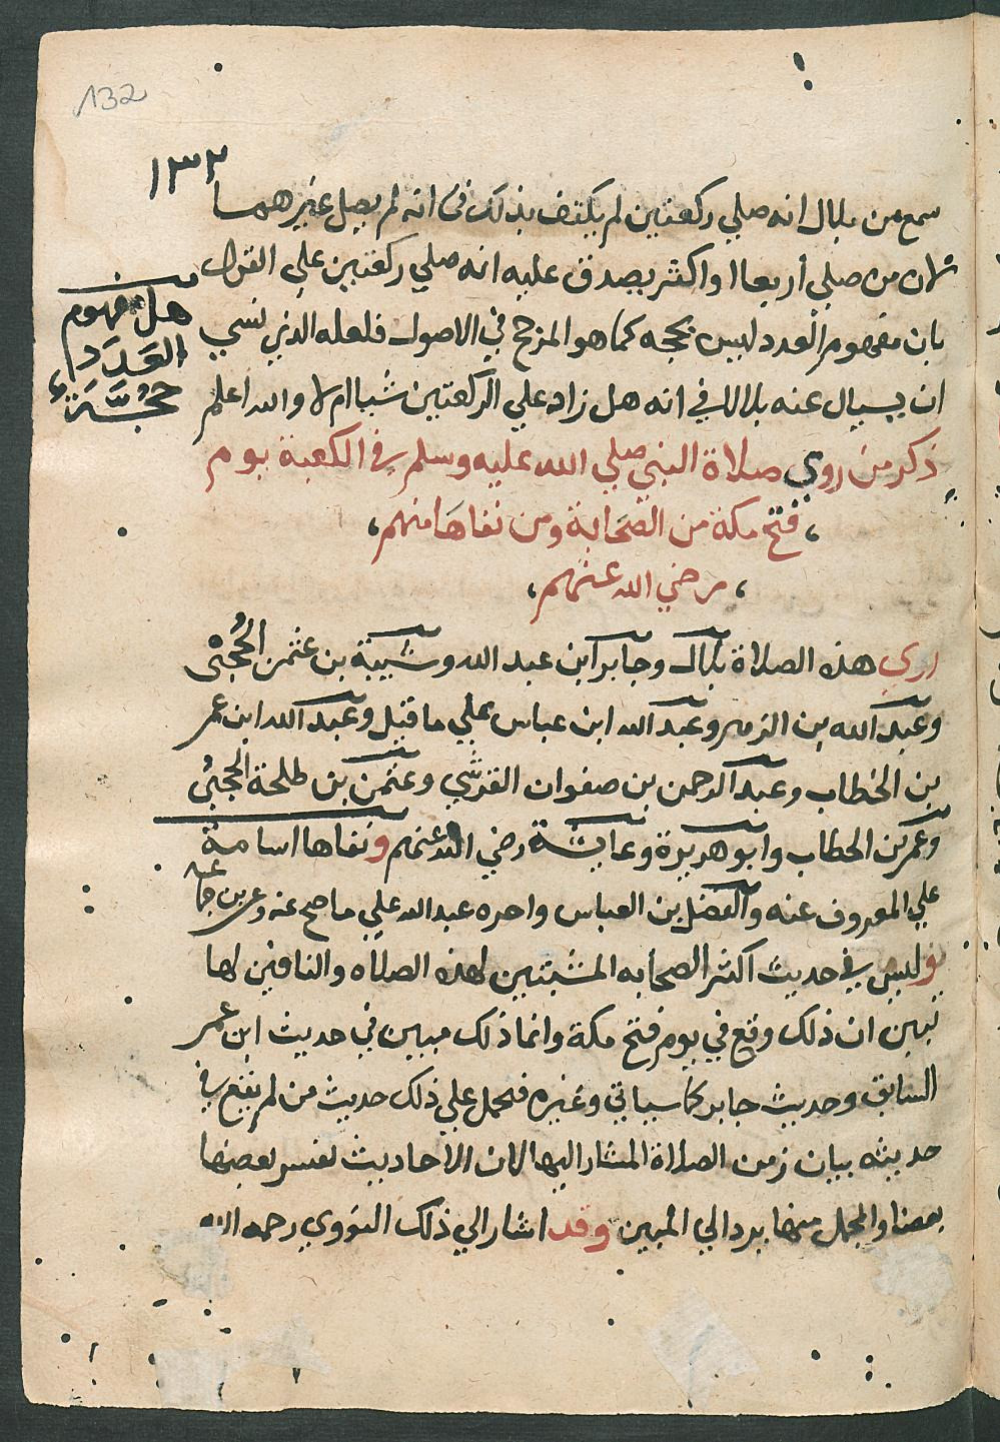 132
١٣٢
سمع من بلال انه صلي ركعتين لم يكتف بذلك في انه لم يصل غيرهما
لان من صلي أربعا او اكثر يصدق عليه انه صلي ركعتين علي القول
بان مفهوم العدد ليس بحجه كما هو المرجح في الاصول فلعله الذي نسي
ان يسال عنه بلالا في انه هل زاد علي الركعتين شيا ام لا والله اعلم
هل مفهوم
العَدَد
حُجَّة
ذكر من روي صلاة النبي صلي الله عليه وسلم في الكعبة يوم
فتح مكة من الصَحَابة ومن نفاهَا منهم
رضي الله عنهم
روي هذه الصلاة بلال وجابر ابن عبد الله وشيبة بن عثمن الحُجبْى
وعبد الله بن الزبير وعبد الله ابن عباس علي ما قيل وعبد الله ابن عمر
بن الخطاب وعبد الرحمن بن صفوان القرشي وعثمن بن طلحة الحجبيُ
وعمر بن الخطاب وابو هريرة وعايشة رضي الله عنهم ونفاها اسامة
علي المعروف عنه والفضل بن العباس واخوه عبد الله علي ما صح عنه وعن
وليس في حديث اكثر الصحابه المثبتين لهذه الصلاه والنافين لها
تبين ان ذلك وقع في يوم فتح مكة وانما ذلك مبين في حديث ابن عمر
السابق وحديث جابر كما سياتي وغيره فيحمل علي ذلك حديث من لم يقع في
حديثه بيان زمن الصلاة المشار اليها لان الاحاديث تفسر بعضها
بعضا والمجمل منها يرد الي المبين وقد اشار الي ذلك النووي رحمه الله